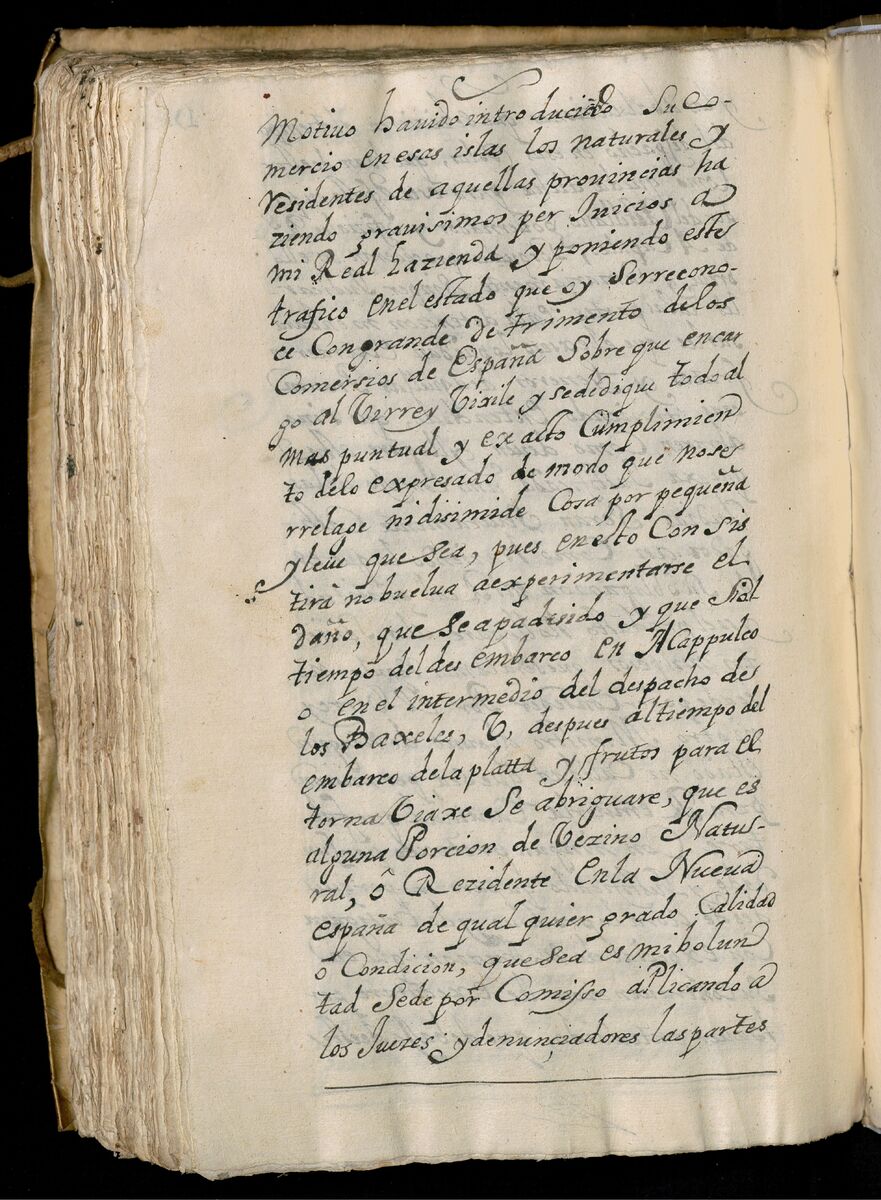 Motivo havido introducido su Co-
mercio en esas islas los naturales y
residentes de aquellas provincias ha
ziendo gravisimos per Iuicios a
mi Real hazienda y poniendo este
trafico en el estado que oy se rrecono-
ce Con grande detrimento de los
Comersios de España Sobre que encar
go al Virrey Vixile y se dedique todo al
mas puntual y exacto Cumplimien
to de lo expresado de modo que no se
rrelage ni disimide Cosa por pequeña
y leve que sea, pues en esto Consis
tirá no buelua a experimentarse el
daño, que se a padesido y que si al
tiempo del des embarco en Acappulco
o en el intermedio del despacho de
los Baxeles, V, despues al tiempo del
embarco de la platta y frutos para el
torna Viaxe Se abriguare, que es
alguna Porcion de Vezino Natu-
ral, ô Rezidente En la Nueva
españa de qual quier grado Calidad
o Condicion, que sea es mi bolun
tad Se de por Comisso aplicando a
los Juezes y denunçiadores las partes